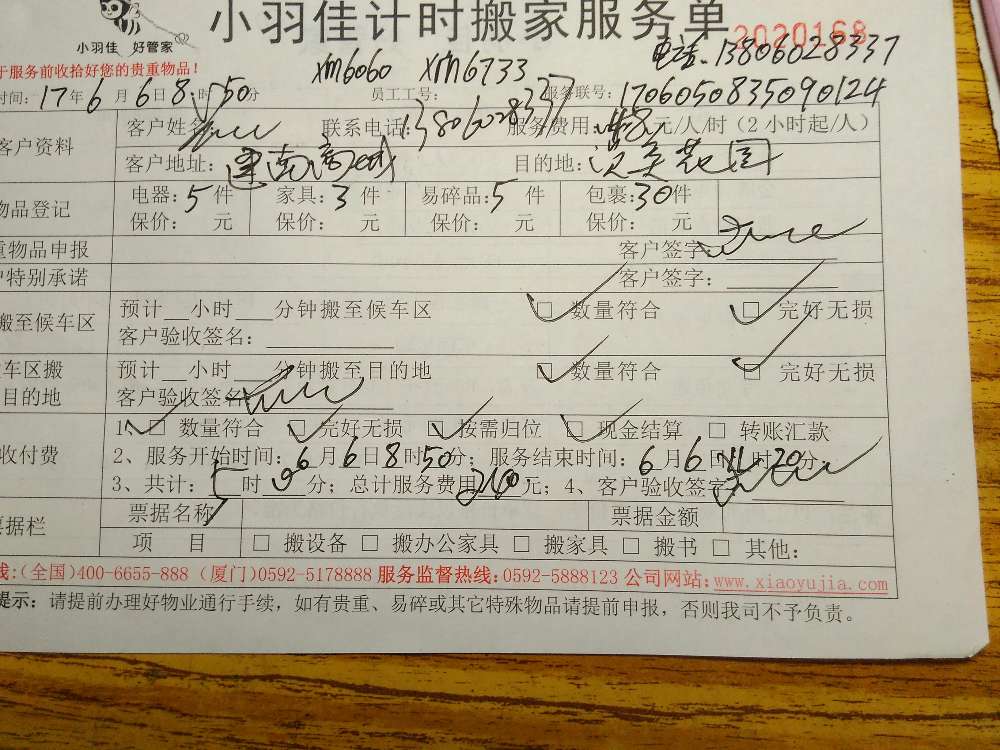 小羽佳计时搬家服务单
小羽佳 好管家
2020168
于服务前收拾好您的贵重物品!
xm6060 xm6733 电话.13806028337
时间: 17年6月6日8时50分 员工工号: 服务联号: 1706050835090124
客户资料 客户姓名: 联系电话: 13806028337 服务费用: 48元/人/时（2小时起/人）
客户地址: 建南商城 目的地: 花园
物品登记 电器: 5件 家具: 3件 易碎品: 5件 包裹: 30件
保价: 元 保价: 元 保价: 元 保价: 元
重物品申报 客户签字:
户特别承诺 客户签字:
搬至候车区 预计__小时___分钟搬至候车区 ☑ 数量符合 ☑ 完好无损
客户验收签名:
车区搬目的地 预计__小时___分钟搬至目的地 ☑ 数量符合 ☑ 完好无损
客户验收签名
收付费 1、☑ 数量符合 ☑ 完好无损 ☑ 按需归位 ☑ 现金结算 □ 转账汇款
2、服务开始时间: 6月6日8时50分; 服务结束时间: 6月6日11时20分;
3、共计: 5时0分; 总计服务费用240元; 4、客户验收签字
票据栏 票据名称 票据金额
项 目 □ 搬设备 □ 搬办公家具 □ 搬家具 □ 搬书 □ 其他:
线:(全国)400-6655-888 (厦门)0592-5178888 服务监督热线:0592-5888123 公司网站:www.xiaoyujia.com
提示: 请提前办理好物业通行手续，如有贵重、易碎或其它特殊物品请提前申报，否则我司不予负责。